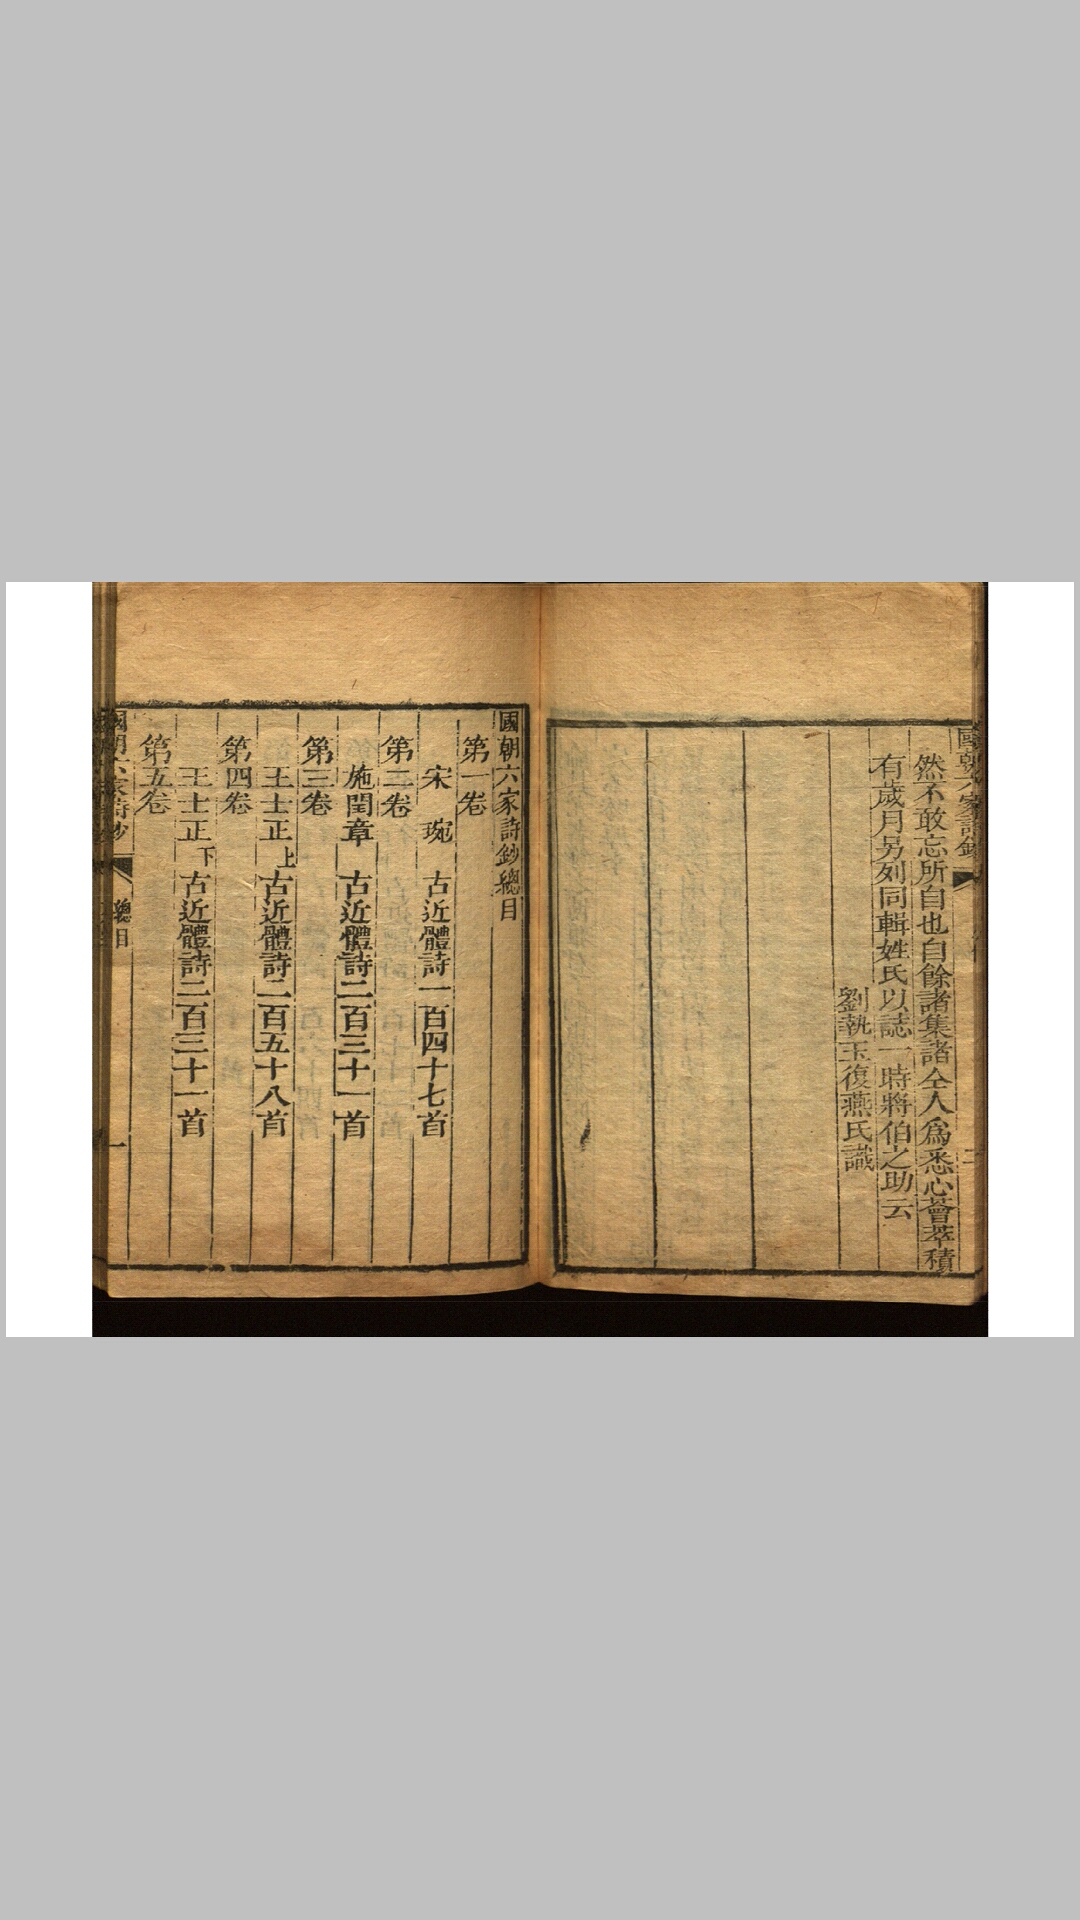 然不敢忘所自也自餘諸集諸仝人爲悉心薈萃積
有歲月另列同輯姓氏以誌一時將伯之助云
劉執玉復燕氏識
國朝六家詩鈔總目
第一卷
宋琬 古近體詩一百四十七首
第二卷
施閏章 古近體詩二百三十一首
第三卷
王士正上 古近體詩二百五十八首
第四卷
王士正下 古近體詩二百三十一首
第五卷
國朝六家詩鈔 總目 一